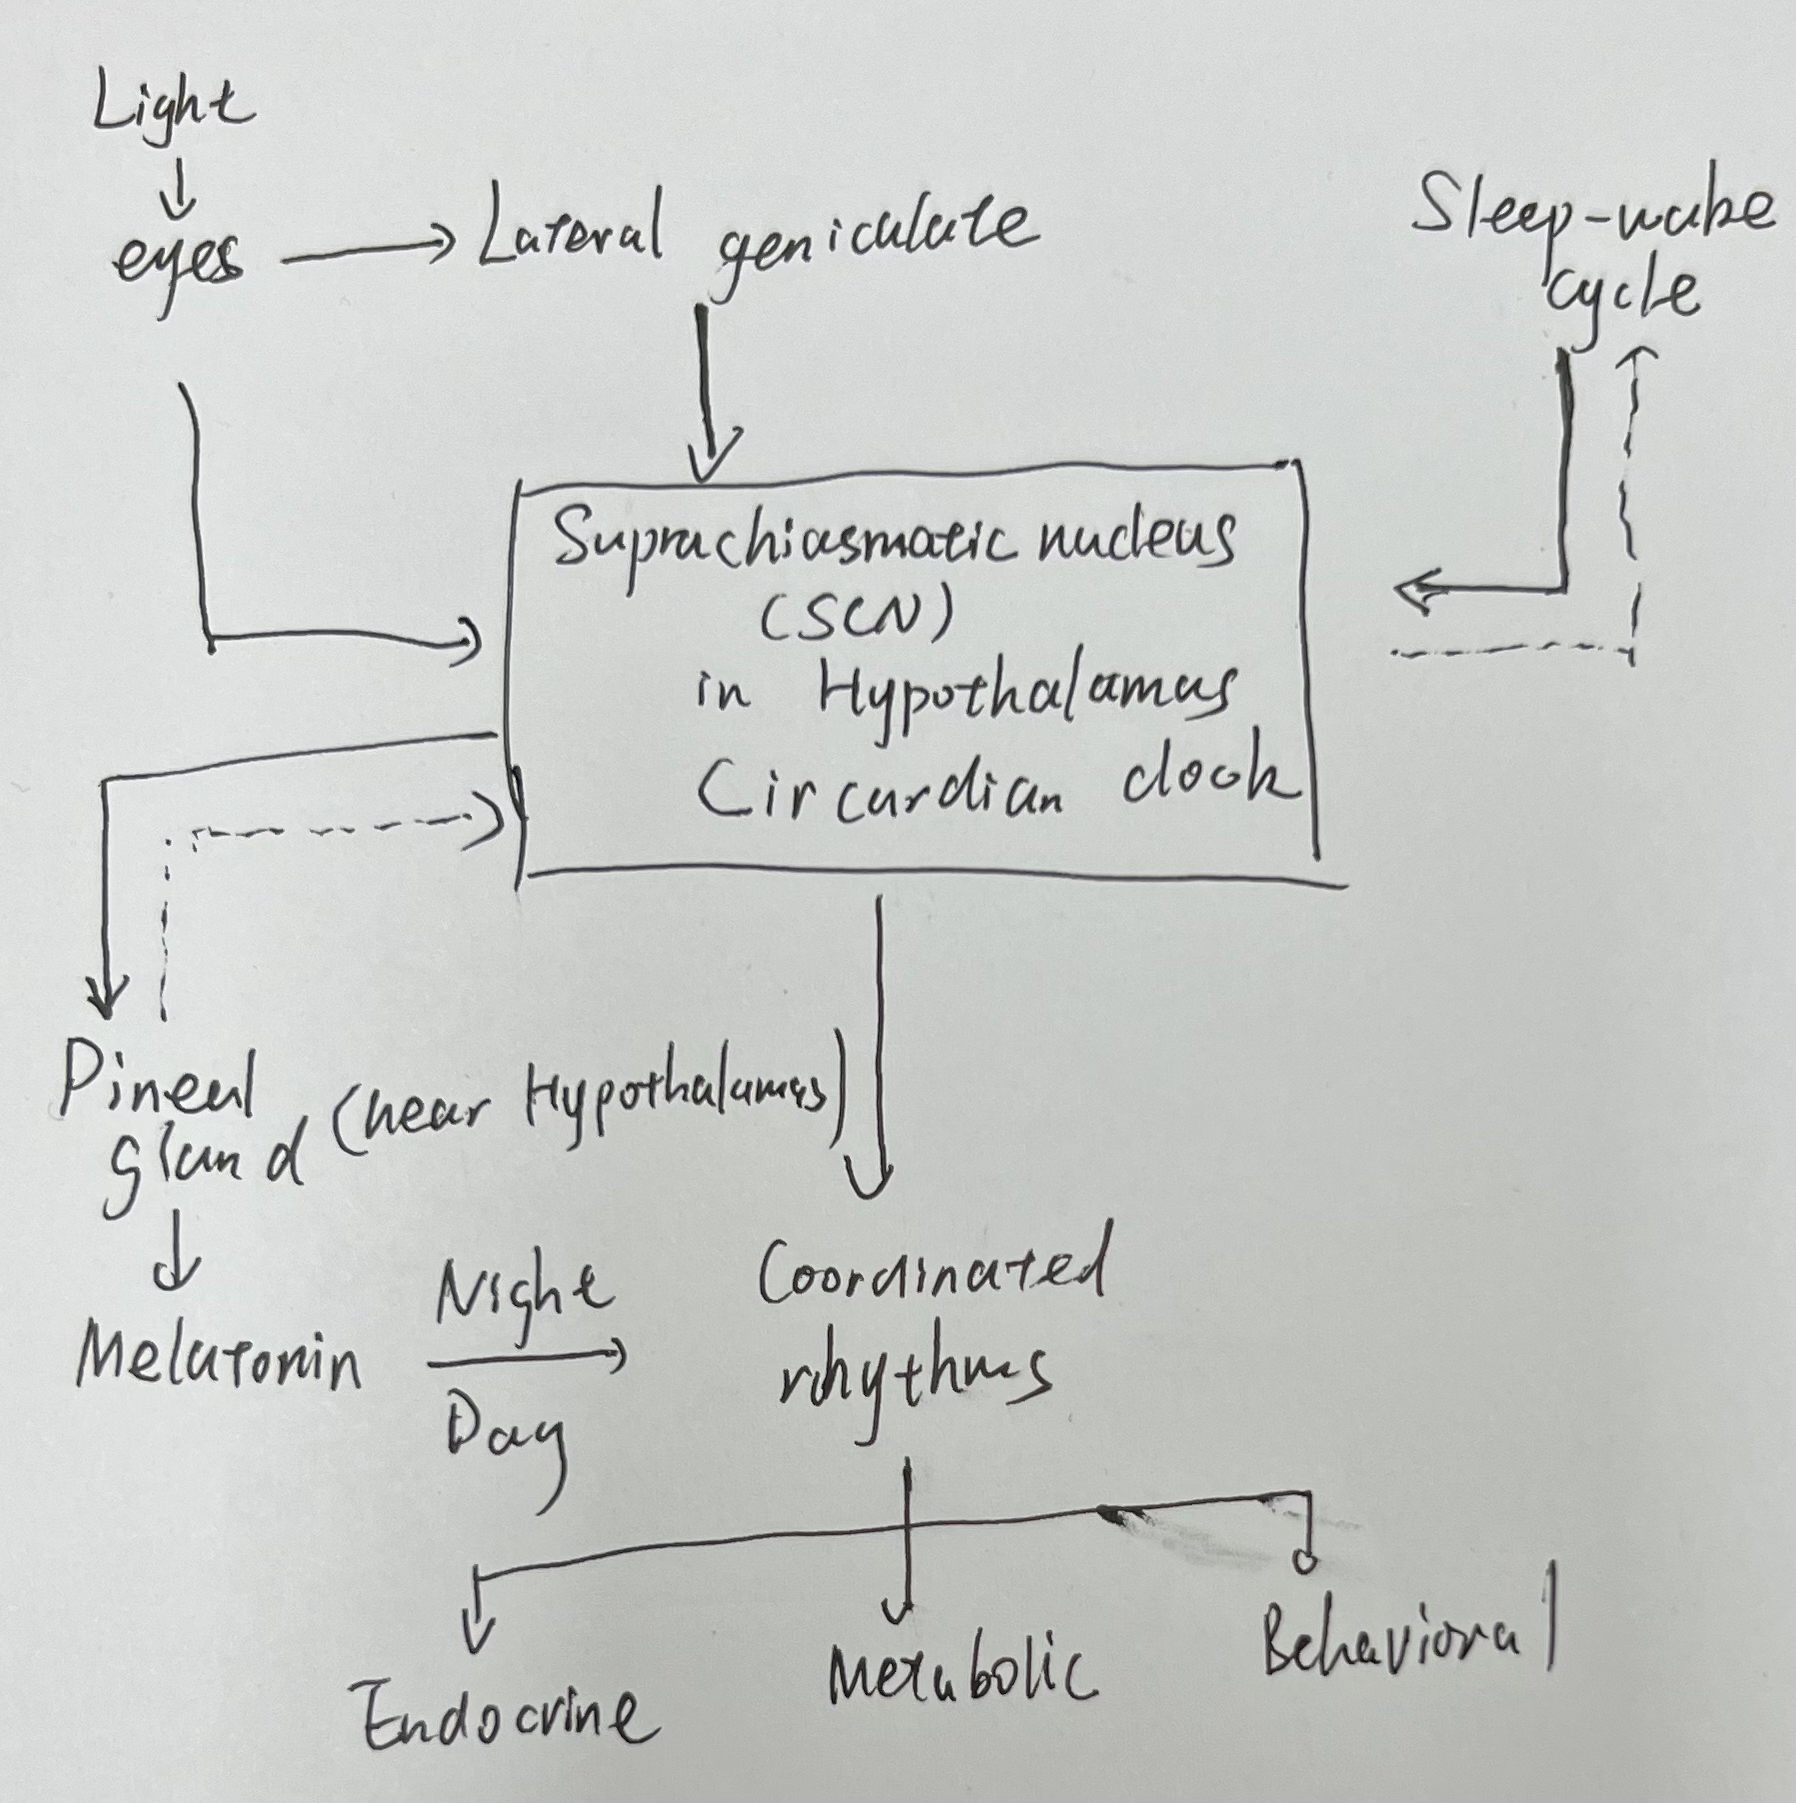 Light
eyes
Lateral geniculate
Sleep-wake
cycle
Suprachiasmatic nucleus
(SCN)
in Hypothalamus
Circardian clock
Pineal
gland (near Hypothalamus)
Melatonin
Night
Day
Coordinated
rhythms
Endocrine
Metabolic
Behavioral